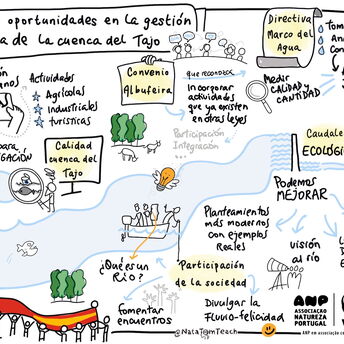 oportunidades en la gestión
a de la cuenca del Tajo
Directiva
Marco del
Agua
Convenio
Albufeira
que reconocen
Actividades
Agrícolas
Industriales
turísticas
Incorporar
actividades
que ya existen
en otras leyes
Medir
CALIDAD y
CANTIDAD
Participación
Integración...
Calidad
cuenca del
Tajo
Caudale
ECOLÓGI
Podemos
MEJORAR
Planteamientos
más modernos
con ejemplos
Reales
visión
al río
¿Qué es un
Río?
Participación
de la sociedad
fomentar
encuentros
Divulgar la
Fluvio-felicidad
ANP
ASSOCIAÇÃO
NATUREZA
PORTUGAL
@NataTomTeach
ANP em associação c